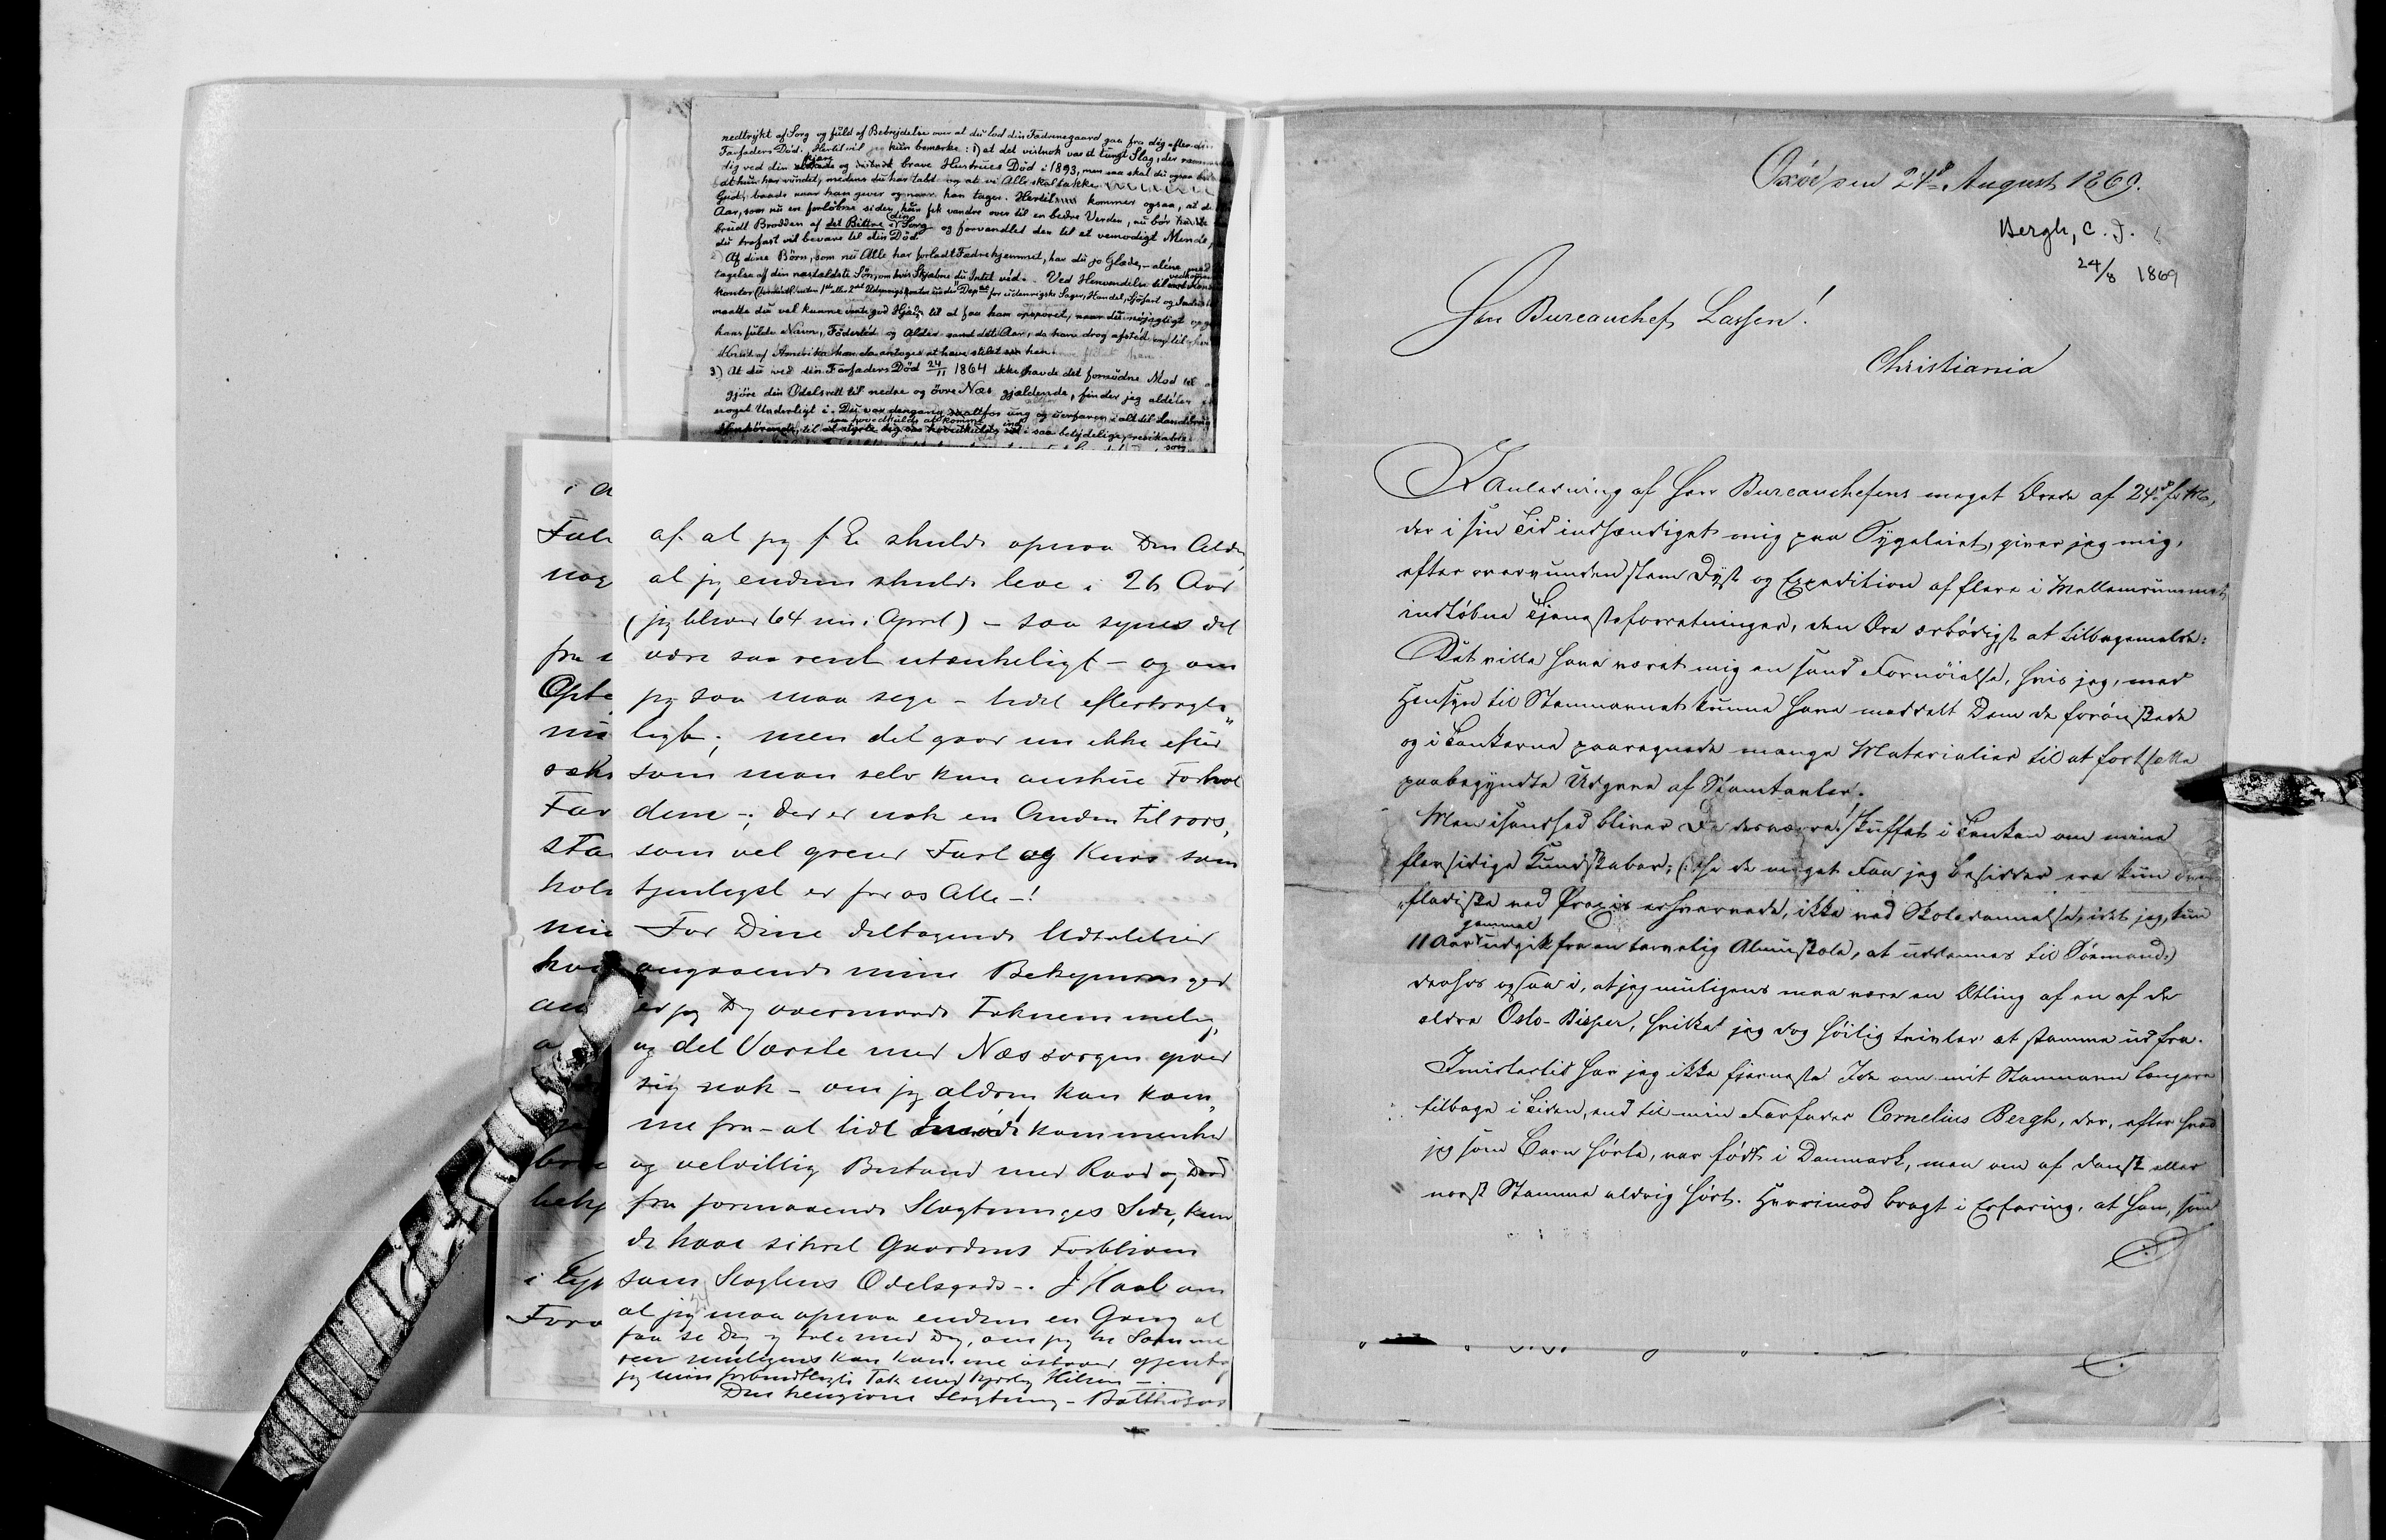 nedtrÿkt af Sorg og fuld af Bebrejdelse over at du lod din Fædrenegaard gaa fra dig efter din
Farfaders Død. Hertil vil jeg kun bemærke: 1) at det vistnok var et tungt Slag, der rammede
dig ved din kjære og brave Hustrues Død i 1893, men saa skal du ogsaa
at hun har vundet, medens du har tabt og at vi Alle skal takke
Gud, baade naar han giver og naar han tager. Hertil kommer ogsaa, at de
Aar, som nu ere forløbne siden hun fik vandre over til en bedre Verden, nu bør have
brudt Brodden af det Bittre i din Sorg og forvandlet den til et vemodigt Minde,
du trofast vil bevare til din Død.
2) Af dine Børn, som nu Alle har forladt Fædrehjemmet, har du jo Glæde, – alene med
tagelse af din næstældste Søn, om hvis Skjæbne du Intet véd. Ved Henvendelse til
Kontor for udenrigske Sager, Handel, Sjöfart og
maatte du vel kunne vente god Hjælp til at faa ham opsporet, naar du nøjagtigt
hans fulde Navn, Fødested og Alder samt det Aar, da han drog afsted, og til
Kant af Amerika han da antoges at have stilet hen.
3) At du ved din Farfaders Død 24/11 1864 ikke havde det fornødne Mod til
gjöre din Odelsret til nedre og övre Næs gjældende, finder jeg aldeles
noget Underligt i. Du var dengang altfor ung og uerfaren i alt til Landbrug
Henhörende, til at styrte dig saa hovedkulds ind i saa betydelige,
i A
Fal
nog
fra
Ofte
nu
sæk
Far
Sta
hol
min
hvi
an
bety
i Ty
Foro
af at jeg f. E. skulde opnaa Den Alder,
at jeg endnu skulde leve i 26 Aar
(jeg bliver 64 nu i April) – saa synes det
være saa rent utænkeligt – og om
jeg saa maa sige – lidet eftertragte-
ligt; men det gaar nu ikke efter
som man selv kan anskue Forhol
dene –; Der er nok en Anden til rors,
som vel greier Fart og Kurs som
tjenligst er for os Alle –!
For Dine deltagende Udtalelser
angaaende mine Bekymringer
er jeg Dig overmaade Taknemmelig,
og det Værste med Næssorgen gaar
sig nok – om jeg aldrig kan kom,
me fra – at lidt Imødekommenhed
og velvillig Bistand med Raad og Daad
fra formaaende Slægtninges Side, kun
de have sikret Gaardens Forbliven
som Slægtens Odelsgods –. I Haab om
at jeg maa opnaa endnu en Gang at
faa se Dig og tale med Dig, om jeg til Somme
ren muligens kan komme østover gjentager
jeg min forbindtligste Tak med kjærlig Hilsen –.
Din hengivne Slægtning – Balthazar
Oxöe den 24de August 1869.
Bergh, C. J.
24/8 1869
Herr Bureauchef Lassen!
Christiania
I Anledning af Herr Bureauchefens meget Ærede af 24de f. M.,
der i sin Tid indhændiget mig paa Sygeleiet, giver jeg mig,
efter overvunden slem Dyst og Expedition af flere i Mellemrummet
indløbne Tjenesteforretninger, den Ære ærbödigst at tilbagemelde:
Det ville have været mig en sand Fornöielse, hvis jeg, med
Hensyn til Stamnavnet kunne have meddelt Dem de forönskede
og i Tankerne paaregnede mange Materialier til at fortsætte
paabegyndte Udgave af Stamtavler.
Men isandhed bliver De desværre! skuffet i Tanken om mine
flersidige Kundskaber; (: thi de meget Faa jeg besidder ere kun over
"fladiske ved Praxis erhvervede, ikke ved Skoledannelse, idet jeg, kun
11 Aar gammel udgik fra en tarvelig Almuskole, at uddannes til Sömand.)
derfor ogsaa i, at jeg muligens maa være en Ætling af en af de
ældre Oslo-Bisper, hvilket jeg dog höilig tvivler at stamme ud fra.
Imidlertid har jeg ikke fjerneste Ide om mit Stamnavn længere
tilbage i Tiden, end til min Farfader Cornelius Bergh, der, efter hvad
jeg som Barn hörte, var födt i Danmark, men om af dansk eller
norsk Stamme aldrig hört. Hvorimod bragt i Erfaring, at han, som